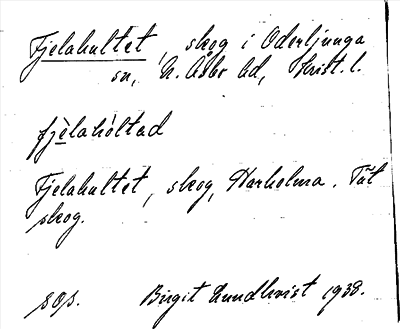 Fjelahultet, skog i Oderljunga
sn, N. Åsbo hd, Krist. l.
fjèlahòltad
Fjelahultet, skog, Harholma. Tät
skog.
Birgit Lundkvist 1938.